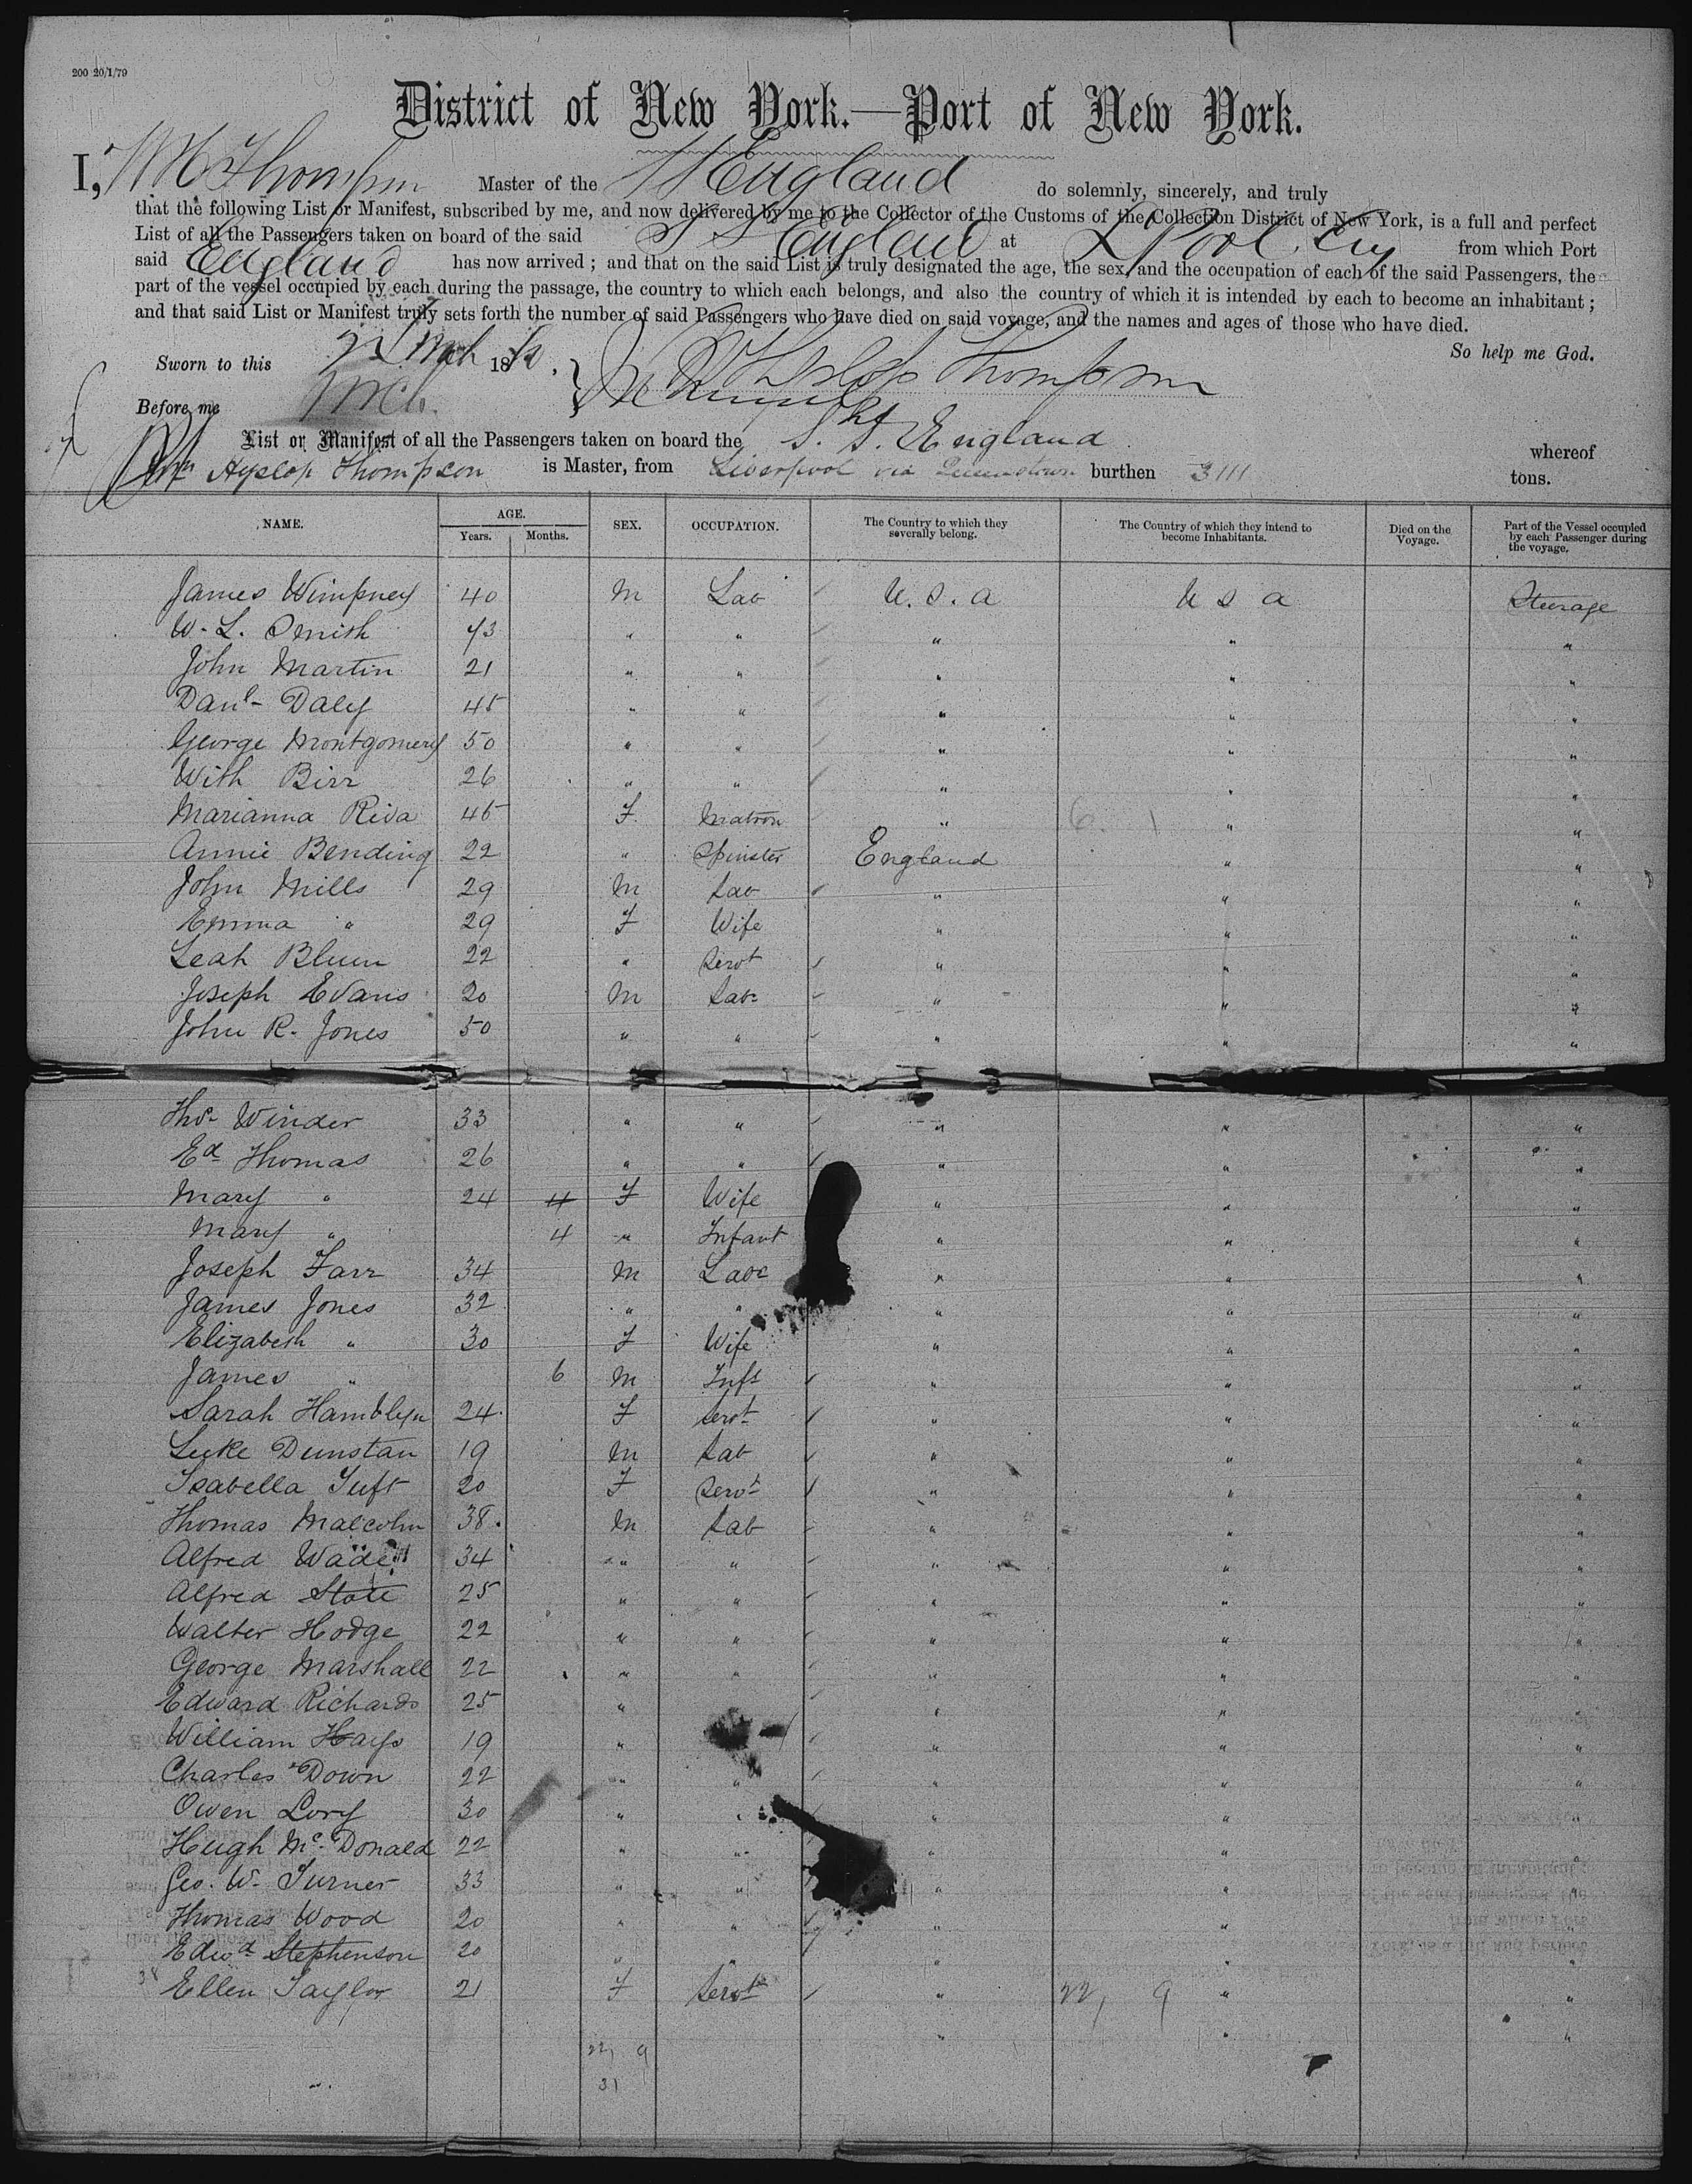 200 20/1/79
District of New York.—Port of New York.
I, Thompson Master of the SS England do solemnly, sincerely, and truly
that the following List or Manifest, subscribed by me, and now delivered by me to the Collector of the Customs of the Collection District of New York, is a full and perfect
List of all the Passengers taken on board of the said SS England at L'Pool from which Port
said England has now arrived; and that on the said List is truly designated the age, the sex, and the occupation of each of the said Passengers, the
part of the vessel occupied by each during the passage, the country to which each belongs, and also the country of which it is intended by each to become an inhabitant;
and that said List or Manifest truly sets forth the number of said Passengers who have died on said voyage, and the names and ages of those who have died.
So help me God.
Sworn to this 18 , Hyslop Thompson
Before me
List or Manifest of all the Passengers taken on board the S.S. England whereof
Wm Hyslop Thompson is Master, from Liverpool via Queenstown burthen 3111 tons.
NAME. AGE. Years. Months. SEX. OCCUPATION. The Country to which they severally belong. The Country of which they intend to become Inhabitants. Died on the Voyage. Part of the Vessel occupied by each Passenger during the voyage.
James Wimpney 40 M Lab U.S.A U S A Steerage
W. L. 43 " " " " "
John Martin 21 " " " " "
Danl Daly 45 " " " " "
George Montgomery 50 " " " " "
With Birr 26 " " " " "
Marianna Riva 45 F. Matron " 6. 1 " "
Annie Bending 22 " Spinster England " "
John Mills 29 M Lab " " "
Emma " 29 F Wife " " "
Leah Blum 22 " Servt " " "
Joseph Evans 20 M Labr " " "
John R. Jones 50 " " " " "
Thos Winder 33 " " " " "
Ed Thomas 26 " " " " "
Mary " 24 4 F Wife " " "
Mary " 4 " Infant " " "
Joseph Farr 34 M Labr " " "
James Jones 32 " " " " "
Elizabeth " 30 F Wife " " "
James " 6 M Inft " " "
Sarah Hamblyn 24 F Servt " " "
Luke Dunstan 19 M Lab " " "
Isabella Tuft 20 F Servt " " "
Thomas Malcolm 38. M Lab " " "
Alfred Wade 34 " " " " "
Alfred State 25 " " " " "
Walter Hodge 22 " " " " "
George Marshall 22 " " " " "
Edward Richards 25 " " " "
William Hays 19 " " " "
Charles Down 22 " " " " "
Owen Lory 30 " " " "
Hugh McDonald 22 " " " " "
Geo. W. Turner 33 " " " "
Thomas Wood 20 " " " " "
Edwd Stephenson 20 " " " " "
38 Ellen Taylor 21 F Servt " 22, 9 " "
" " "
22, 9
31